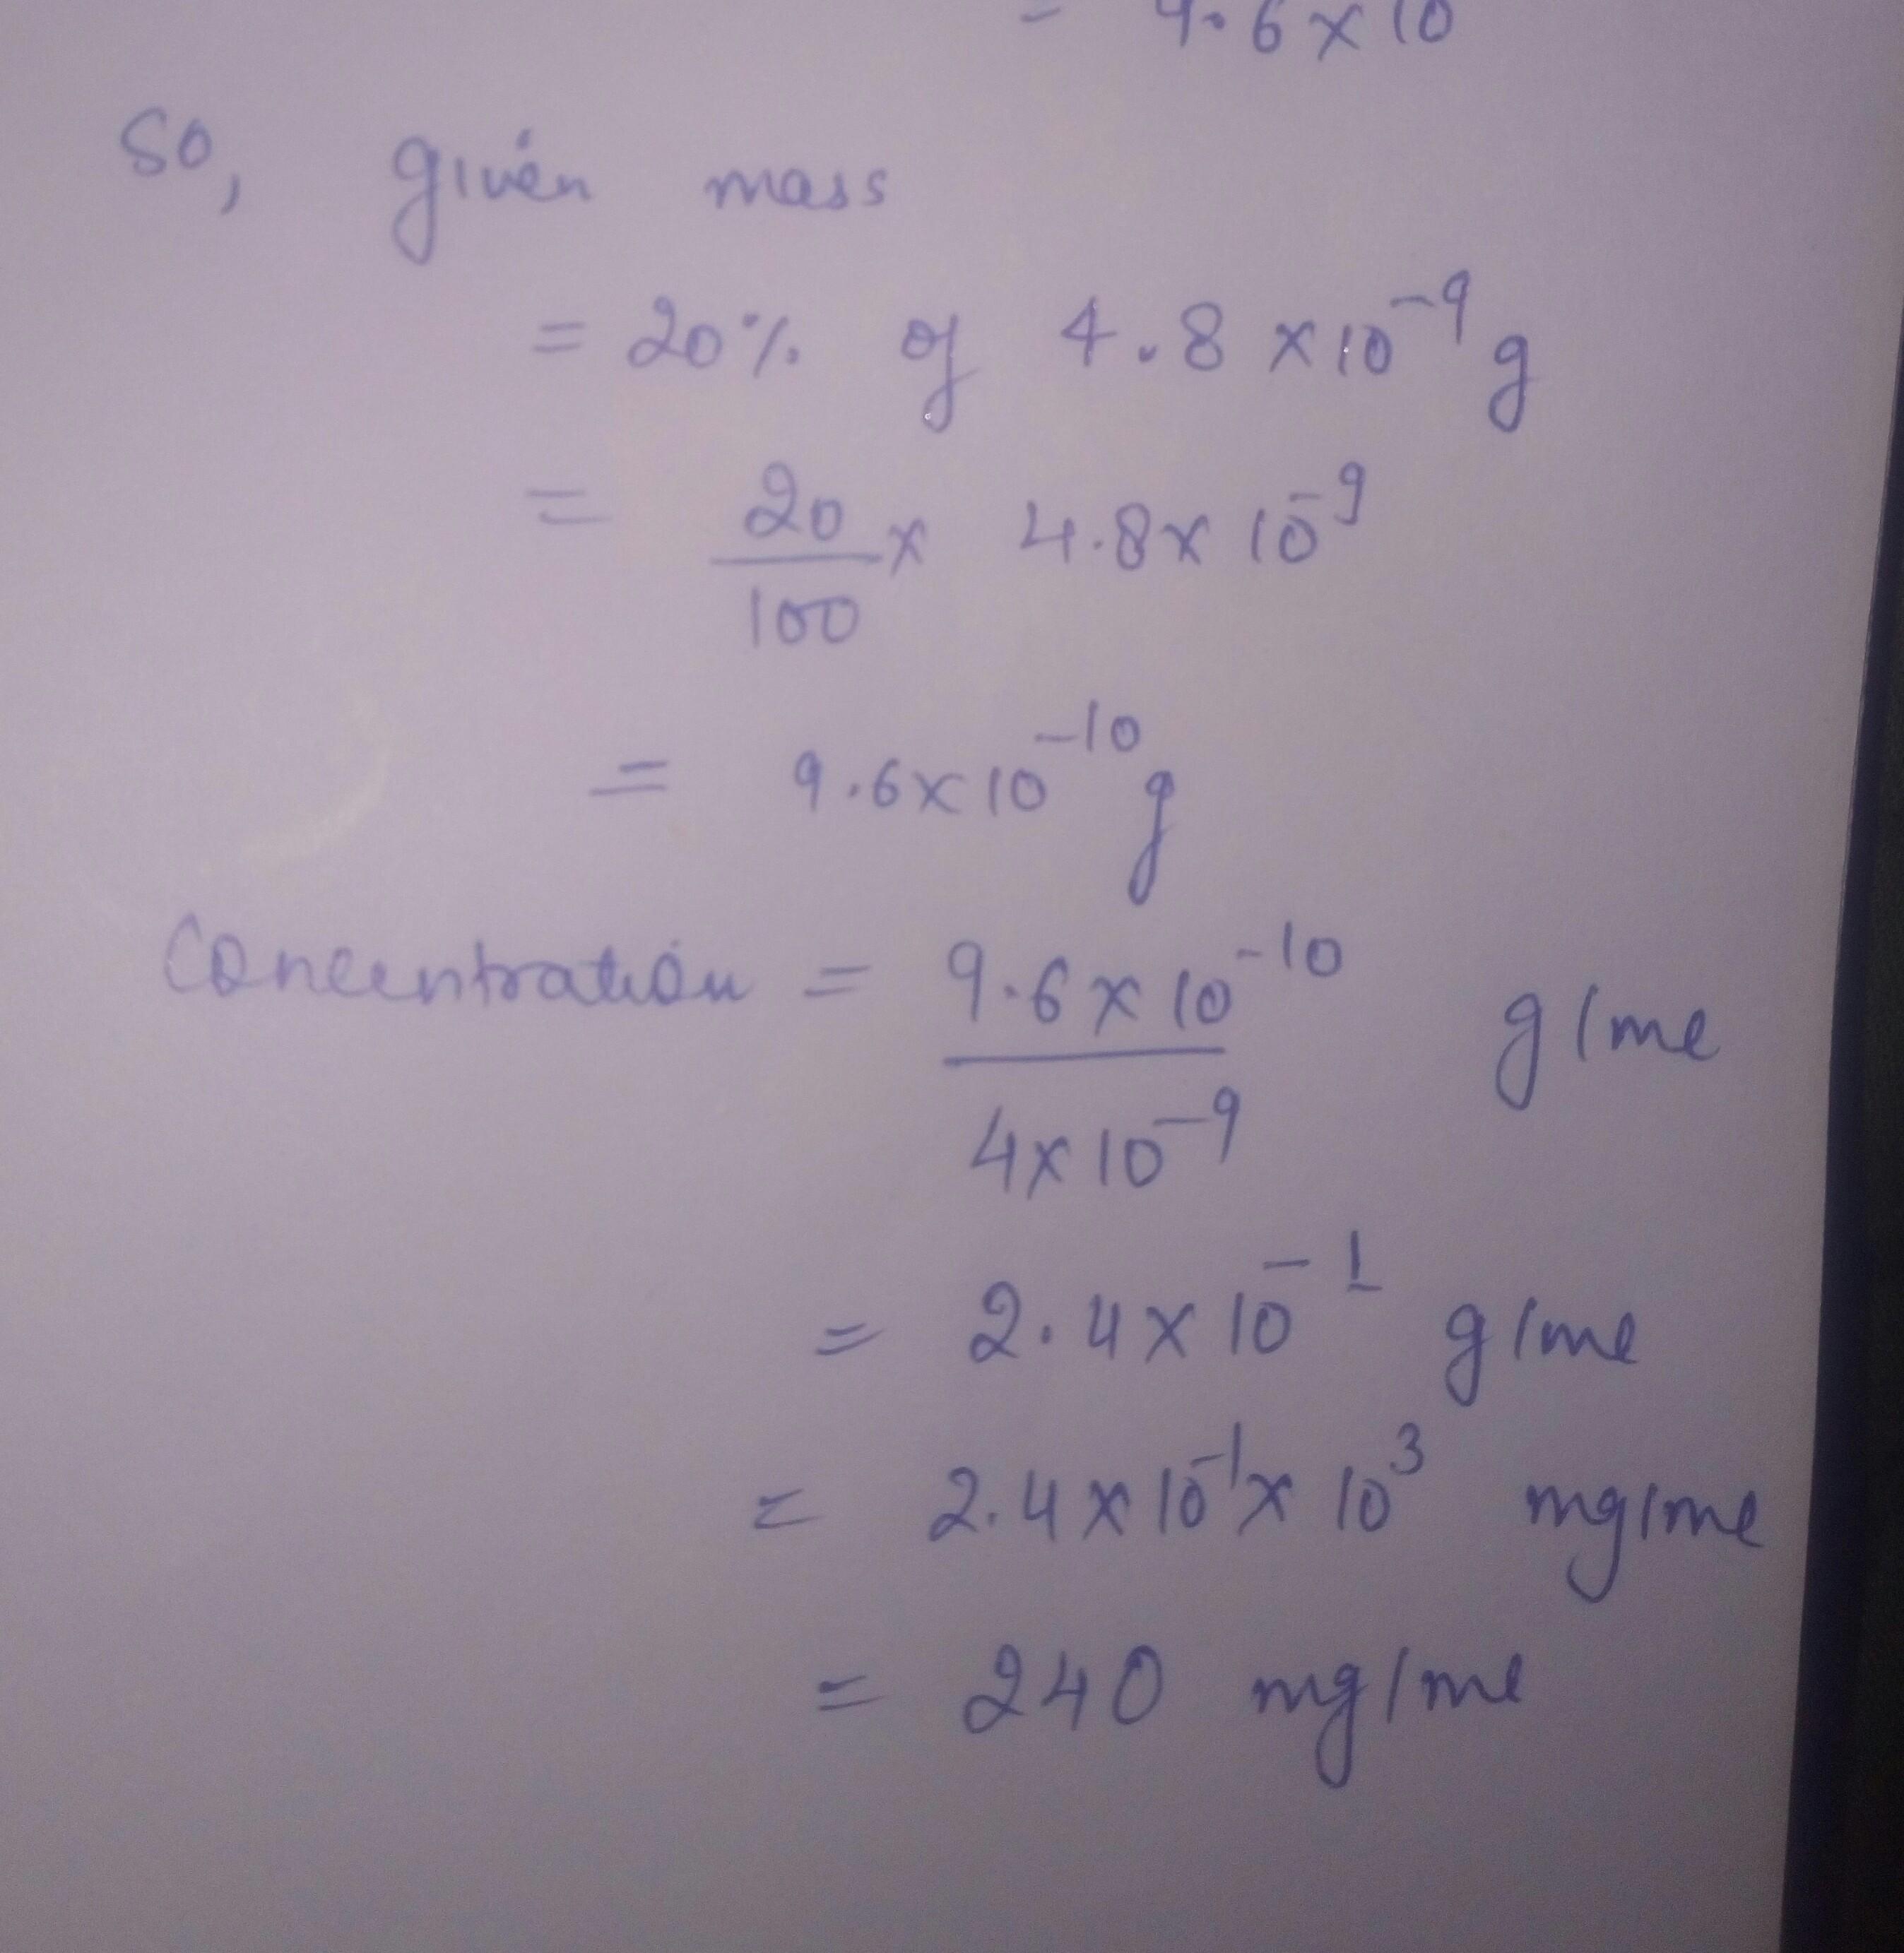 = 9.6 x 10
So, given mass
= 20% of 4.8 x 10⁻⁹ g
= 20/100 x 4.8 x 10⁻⁹
= 9.6 x 10⁻¹⁰ g
Concentration = 9.6 x 10⁻¹⁰ / 4 x 10⁻⁹ g/ml
= 2.4 x 10⁻¹ g/ml
= 2.4 x 10⁻¹ x 10³ mg/ml
= 240 mg/ml